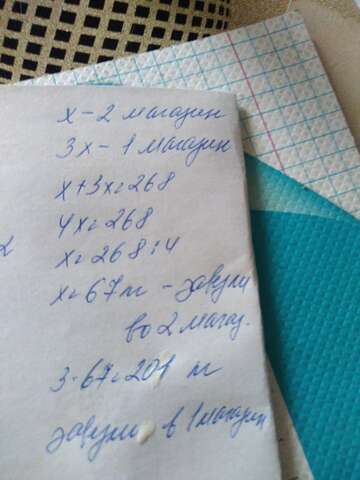 х - 2 магазин
3х - 1 магазин
х + 3х = 268
4х = 268
х = 268 : 4
х = 67 м - завезли
во 2 магаз.
3 · 67 = 201 м
завезли в 1 магазин